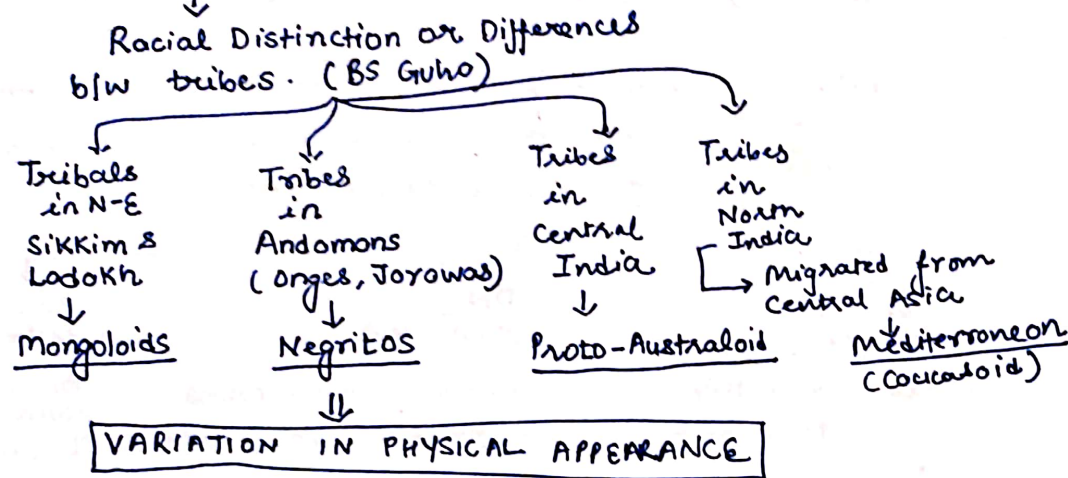 Racial Distinction or Differences
b/w tribes. (BS Guho)
Tribals
in N-E
Sikkim &
Ladokh
↓
Mongoloids
Tribes
in
Andomons
(Onges, Jorowas)
↓
Negritos
Tribes
in
Central
India
↓
Proto-Australoid
Tribes
in
North
India
→ Migrated from
Central Asia
↓
Mediterroneon
(Coucasoid)
⇓
VARIATION IN PHYSICAL APPEARANCE